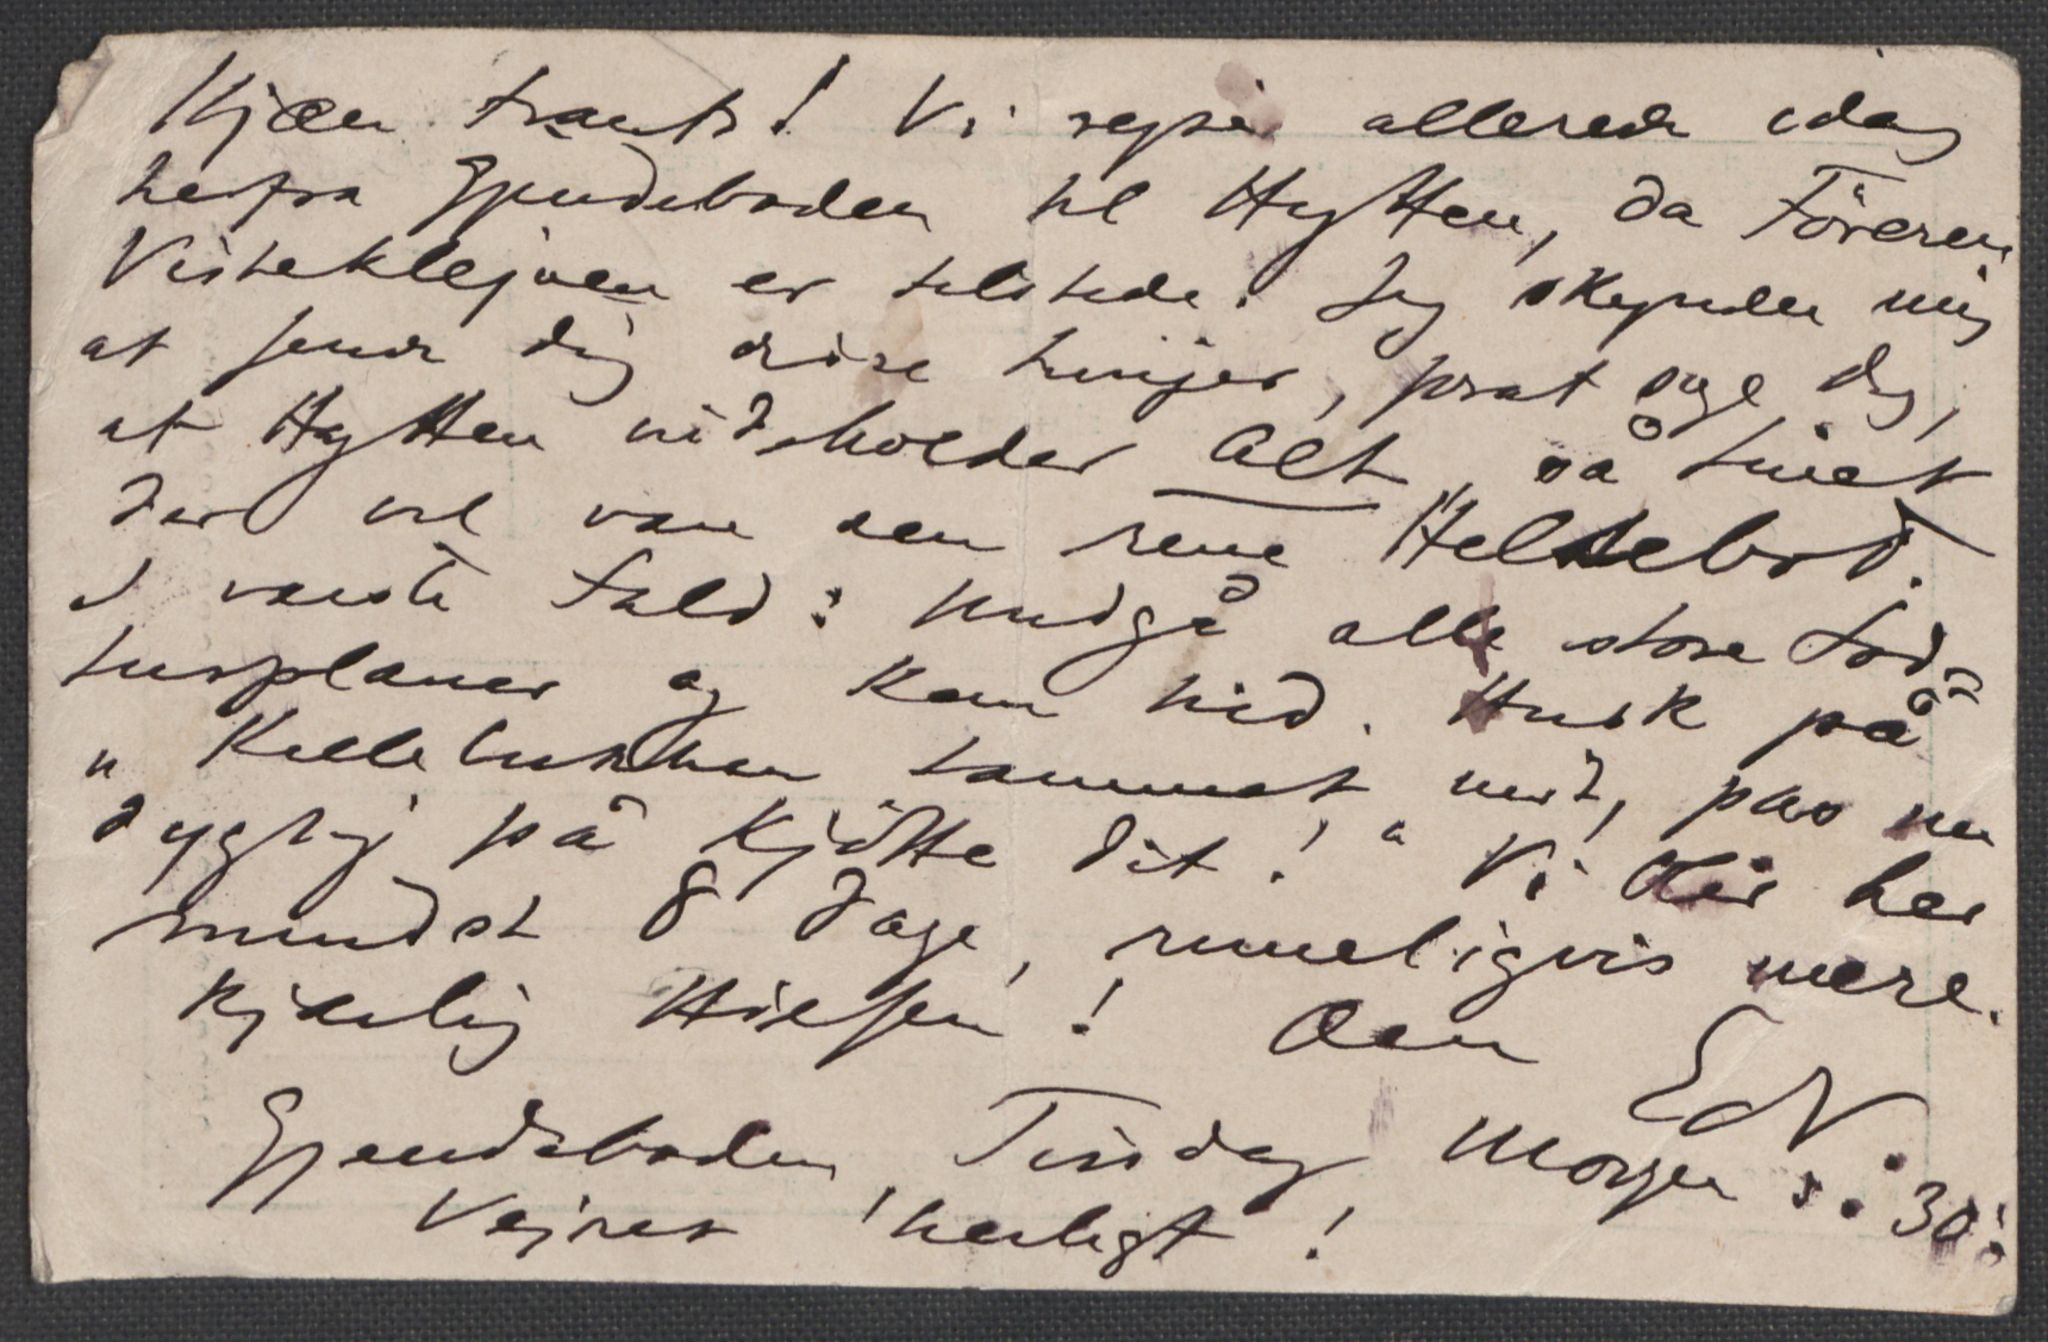 Kjære Frants! Vi rejser allerede idag
herfra Gjendeboden til Hytten, da Föreren
Vistekleiven er tilstede. Jeg skynder mig
at sende dig disse Linjer, for at sige dig,
at Hytten indeholder Alt, så Livet
der vil være den rene Helsebod.
I værste Fald: Undgå alle store Fod-
turplaner og kom hid. Husk på
„ Killebukken Lammet mit, pas nu
dygtig på Kjötte dit!“ Vi blir her
mindst 8 Dage, rimeligvis mere.
Kjærlig Hilsen! Din EdV.
Gjendeboden Tirsdag Morgen: 30:
Vejret herligt!